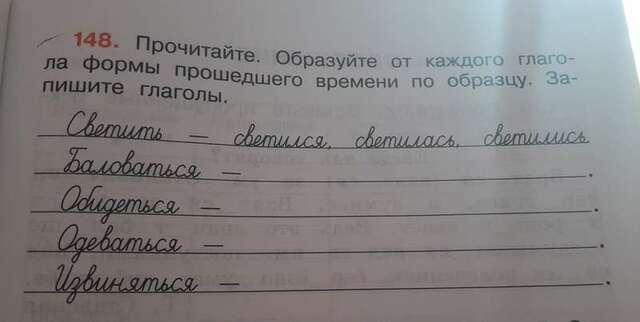 148. Прочитайте. Образуйте от каждого глаго-
ла формы прошедшего времени по образцу. За-
пишите глаголы.
Светить — светился, светилась, светились
Баловаться — .
Обидеться — .
Одеваться — .
Извиняться — .